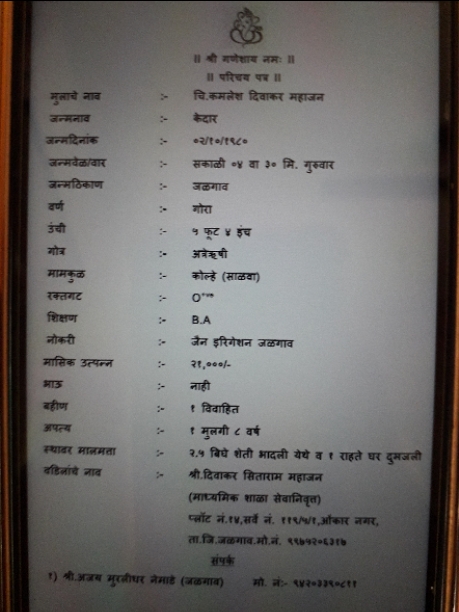 || श्री गणेशाय नमः ||
|| परिचय पत्र ||
मुलाचे नाव :- चि.कमलेश दिवाकर महाजन
जन्मनाव :- केदार
जन्मदिनांक :- ०२/१०/१९८०
जन्मवेळ/वार :- सकाळी ०४ वा ३० मि. गुरुवार
जन्मठिकाण :- जळगाव
वर्ण :- गोरा
उंची :- ५ फूट ४ इंच
गोत्र :- अत्रेऋषी
मामकुळ :- कोल्हे (साळवा)
रक्तगट :- O+ve
शिक्षण :- B.A
नोकरी :- जैन इरिगेशन जळगाव
मासिक उत्पन्न :- २१,०००/-
भाऊ :- नाही
बहीण :- १ विवाहित
अपत्य :- १ मुलगी ८ वर्ष
स्थावर मालमत्ता :- २.५ बिघे शेती भादली येथे व १ राहते घर दुमजली
वडिलांचे नाव :- श्री.दिवाकर सिताराम महाजन
(माध्यमिक शाळा सेवानिवृत्त)
प्लॉट नं.१४,सर्वे नं. ११९/५/१,ओंकार नगर,
ता.जि.जळगाव.मो.नं. ९९७५२०६३१७
संपर्क
१) श्री.अजय मुरलीधर नेमाडे (जळगाव) मो. नं:- ९४२०३३९०८११